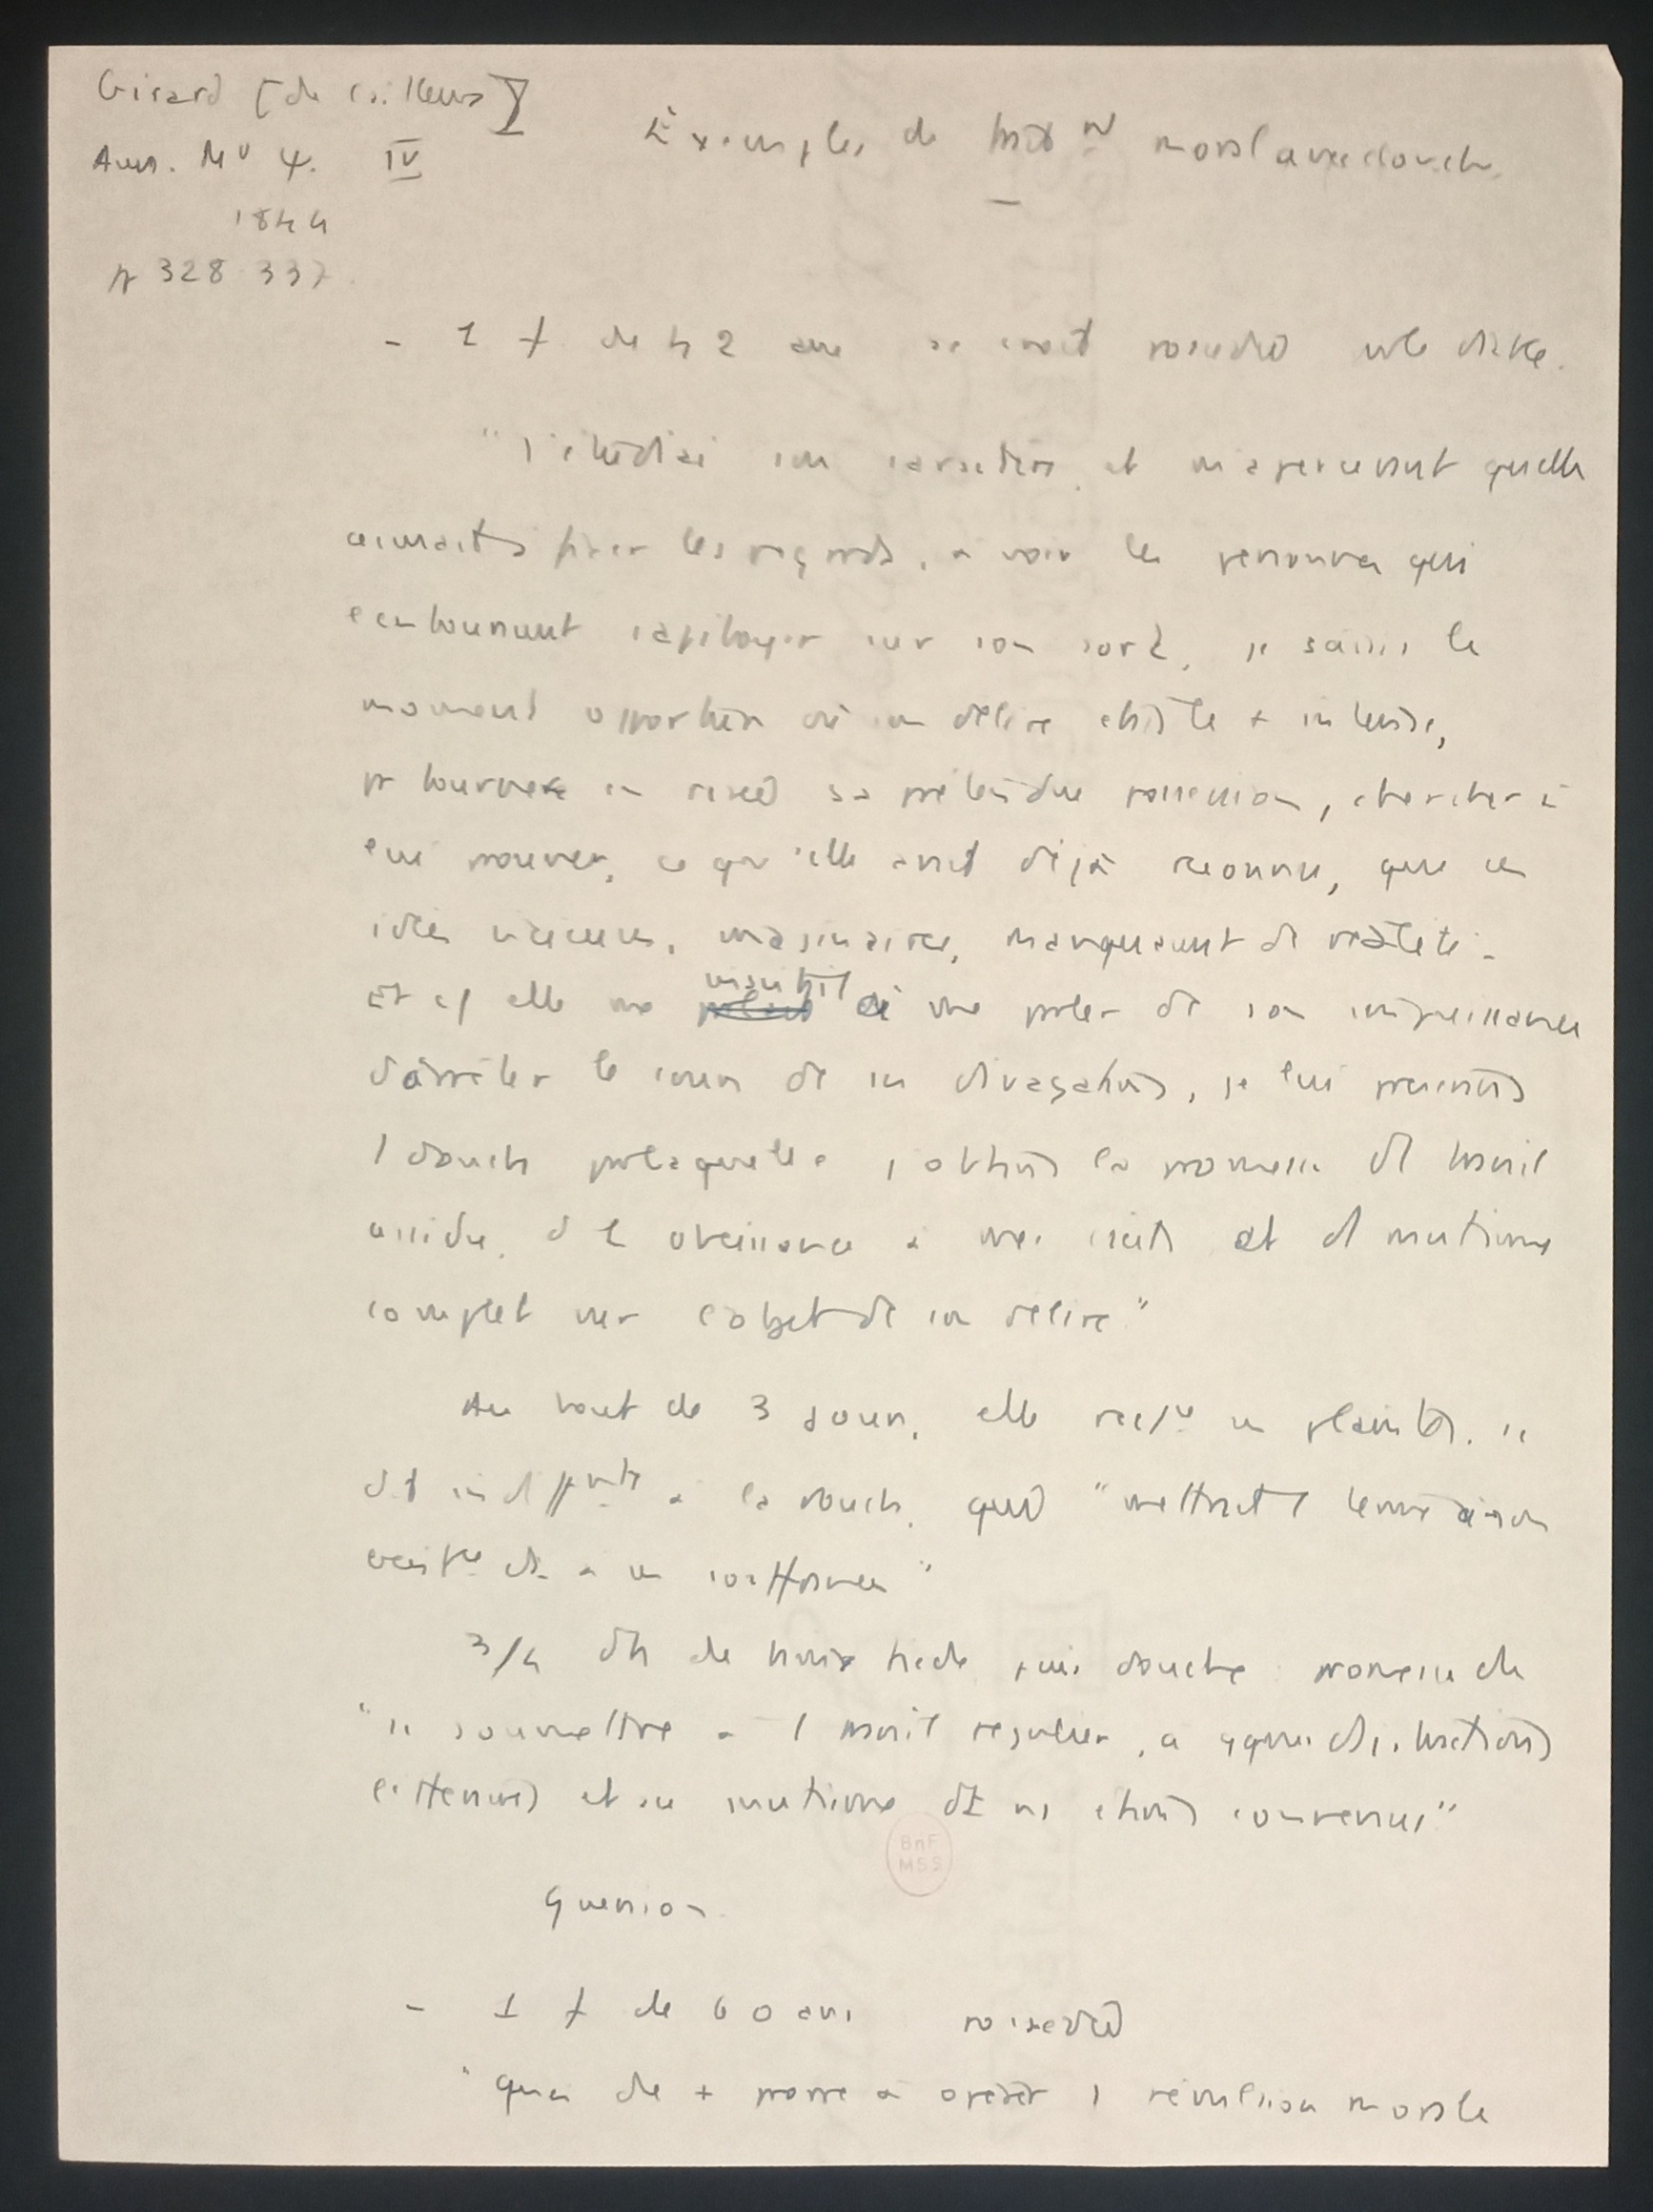 Girard [de Cailleux]
Ann. MP 4. IV
1844
p 328 337.
Exemples de trait nt moral avec douche
- 1 f de 42 ans se croit possédée par le diable.
"J'étudiai son caractère, et m'apercevant qu'elle
aimait à fixer les regards, à voir les personnes qui
l'entouraient s'apitoyer sur son sort, je saisis le
moment opportun où son délire était le + intense,
pr tourner en risée sa prétendue possession, chercher à
lui prouver, ce qu'elle avait déjà reconnu, que ces
idées vicieuses, imaginaires, manquaient de réalité.
Et c/ elle me parlait de son impuissance
d'arrêter le cours de ses divagations, je lui prescrivis
1 douche par laquelle j'obtins la promesse de travail
assidu, d'1 obéissance à mes et de mutisme
complet sur l'objet de son délire"
Au bout de 3 jours, elle ses plaintes, se
dit indifférente à la douche, qui "mettrait 1 terme à son
existence et à ses souffrances"
3/4 d'h de bain tiède puis douche : promesse de
"se soumettre à 1 travail régulier, à qques distractions
et au mutisme et ns étions convenus"
Guérison.
- 1 f de 60 ans possédée
"quoi de + propre à opérer 1 révulsion morale
BnF
MSS